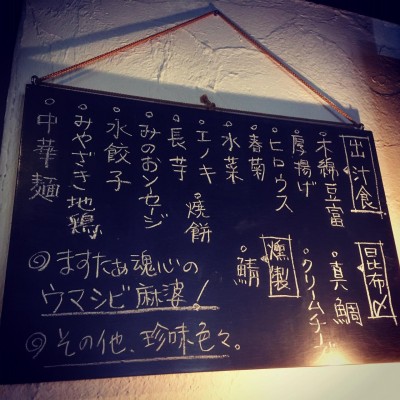 出汁食
木綿豆富
厚揚げ
ヒロウス
春菊
水菜
エノキ
焼餅
長芋
みのおソーセージ
水餃子
みやざき地鶏
中華麺
昆布〆
真鯛
クリームチーズ
燻製
鯖
ますたぁ魂心の
ウマシビ麻婆！
その他、珍味色々。